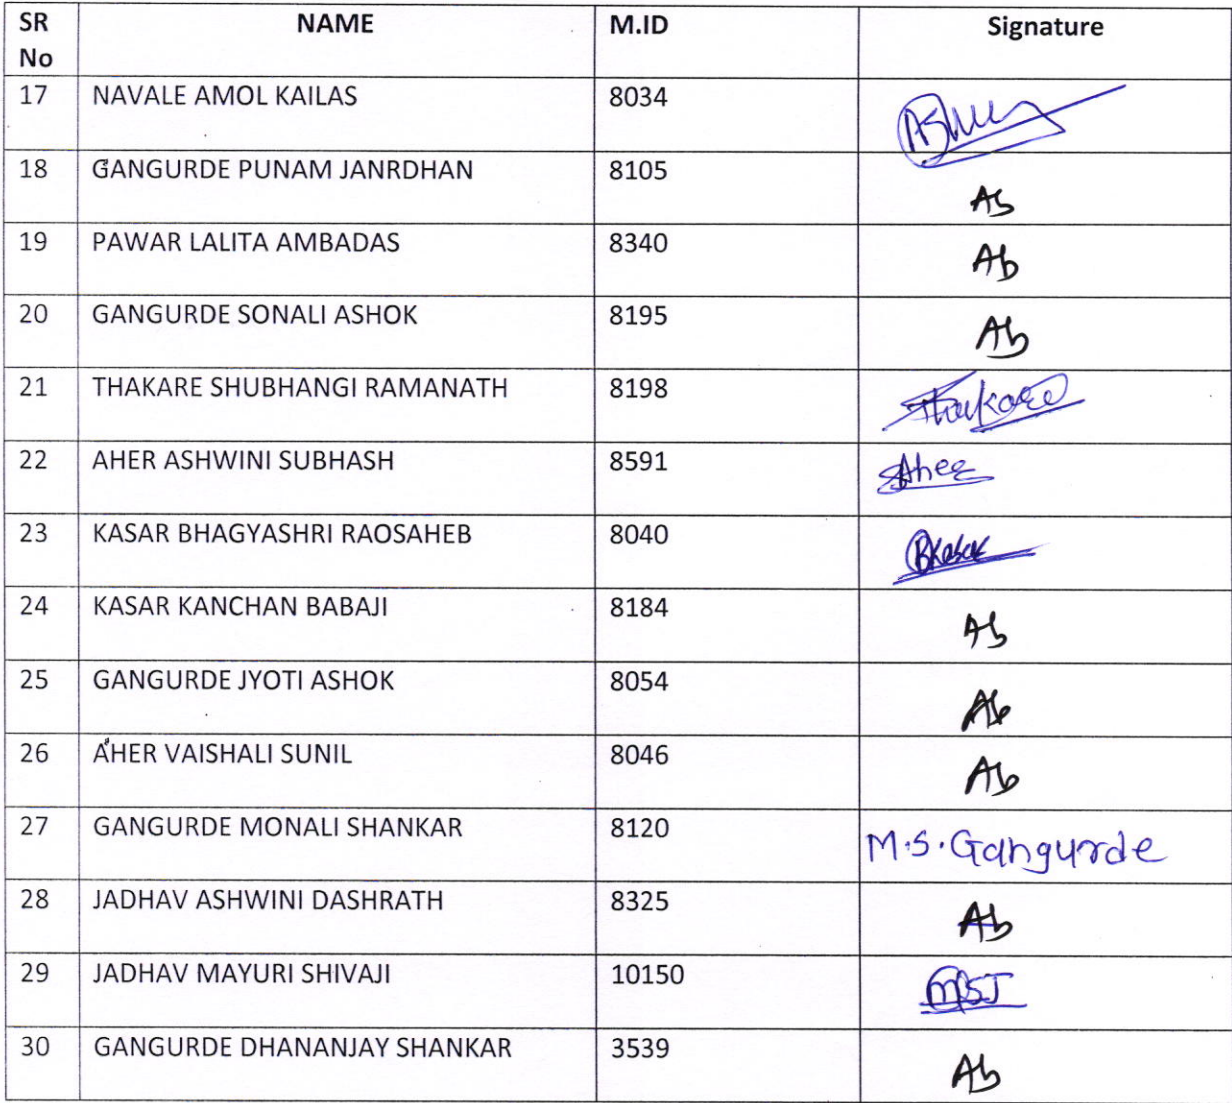 SR No NAME M.ID Signature
17 NAVALE AMOL KAILAS 8034
18 GANGURDE PUNAM JANRDHAN 8105 Ab
19 PAWAR LALITA AMBADAS 8340 Ab
20 GANGURDE SONALI ASHOK 8195 Ab
21 THAKARE SHUBHANGI RAMANATH 8198 Thakare
22 AHER ASHWINI SUBHASH 8591 Aher
23 KASAR BHAGYASHRI RAOSAHEB 8040 BKasar
24 KASAR KANCHAN BABAJI 8184 Ab
25 GANGURDE JYOTI ASHOK 8054 Ab
26 AHER VAISHALI SUNIL 8046 Ab
27 GANGURDE MONALI SHANKAR 8120 M.S.Gangurde
28 JADHAV ASHWINI DASHRATH 8325 Ab
29 JADHAV MAYURI SHIVAJI 10150 MSJ
30 GANGURDE DHANANJAY SHANKAR 3539 Ab